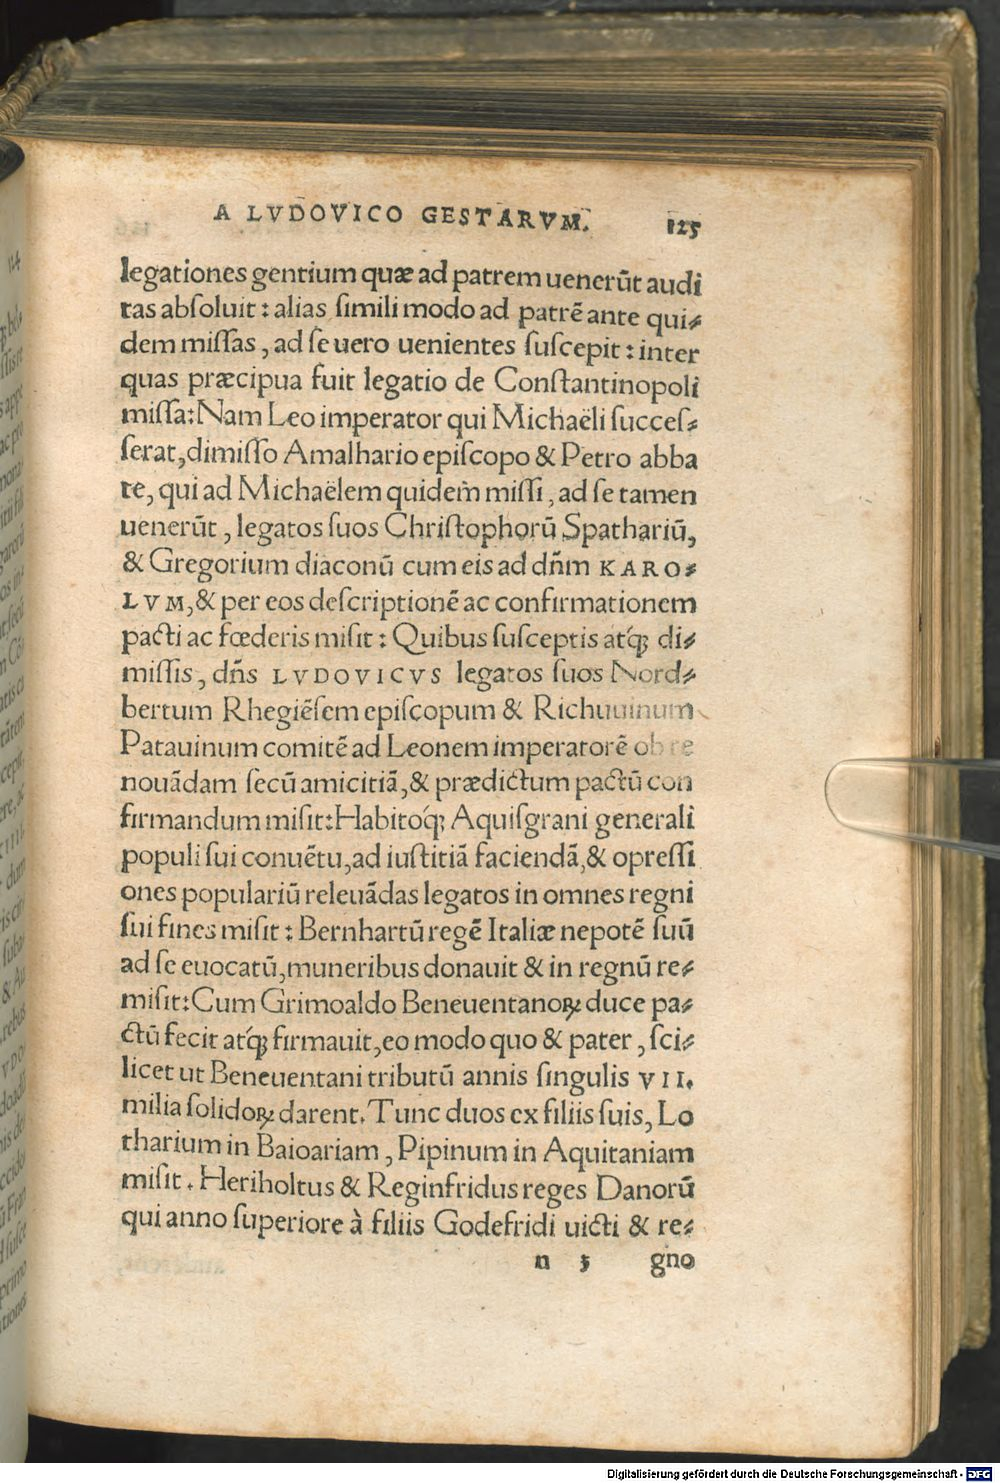 A LVDOVICO GESTARVM. 125
legationes gentium quæ ad patrem uenerūt audi
tas absoluit : alias simili modo ad patrē ante qui⸗
dem missas, ad se uero uenientes suscepit : inter
quas præcipua fuit legatio de Constantinopoli
missa: Nam Leo imperator qui Michaëli succes⸗
serat, dimisso Amalhario episcopo & Petro abba
te, qui ad Michaëlem quidem missi, ad se tamen
uenerūt, legatos suos Christophorū Spathariū,
& Gregorium diaconū cum eis ad dñm KARO⸗
LVM, & per eos descriptionē ac confirmationem
pacti ac fœderis misit : Quibus susceptis atq́ꝫ di⸗
missis, dñs LVDOVICVS legatos suos Nord⸗
bertum Rhegiēsem episcopum & Richuuinum
Patauinum comitē ad Leonem imperatorē ob re
nouādam secū amicitiā, & prædictum pactū con
firmandum misit: Habitoq́ꝫ Aquisgrani generali
populi sui conuētu, ad iustitiā faciendā, & opressi
ones populariū releuādas legatos in omnes regni
sui fines misit : Bernhartū regē Italiæ nepotē suū
ad se euocatū, muneribus donauit & in regnū re⸗
misit: Cum Grimoaldo Beneuentanoꝝ duce pa⸗
ctū fecit atq́ꝫ firmauit, eo modo quo & pater, sci⸗
licet ut Beneuentani tributū annis singulis VII.
milia solidoꝝ darent. Tunc duos ex filiis suis, Lo
tharium in Baioariam, Pipinum in Aquitaniam
misit. Heriholtus & Reginfridus reges Danorū
qui anno superiore à filiis Godefridi uicti & re⸗
n 3 gno
Digitalisierung gefördert durch die Deutsche Forschungsgemeinschaft - DFG